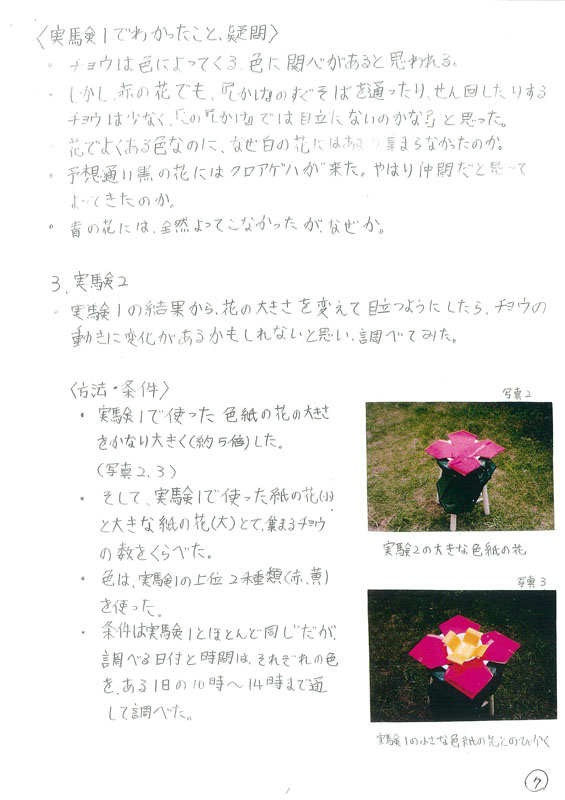 〈実験1でわかったこと、疑問〉
・チョウは色によってくる。色に関べがあると思われる。
・しかし、赤の花でも、『しかけ』のすぐそばを通ったり、せん回したりする
チョウは少なく、『この『しかけ』では目立たないのかな』と思った。
・花でよくある色なのに、なぜ白の花にはあまり集まらなかったのか。
・予想通り黒の花にはクロアゲハが来た。やはり仲間だと思って
よってきたのか。
・青の花には、全然よってこなかったが、なぜか。
3、実験2
・実験1の結果から、花の大きさを変えて目立つようにしたら、チョウの
動きに変化があるかもしれないと思い、調べてみた。
〈方法・条件〉
・実験1で使った色紙の花の大きさ
をかなり大きく(約5倍)した。
(写真2、3)
・そして、実験1で使った紙の花(小)
と大きな紙の花(大)とで、集まるチョウ
の数をくらべた。
・色は、実験1の上位2種類(赤、黄)
を使った。
・条件は実験1とほとんど同じだが、
調べる日付と時間は、それぞれの色
を、ある1日の10時〜14時まで通
して調べた。
写真2
実験2の大きな色紙の花
写真3
実験1の小さな色紙の花とのひかく
7